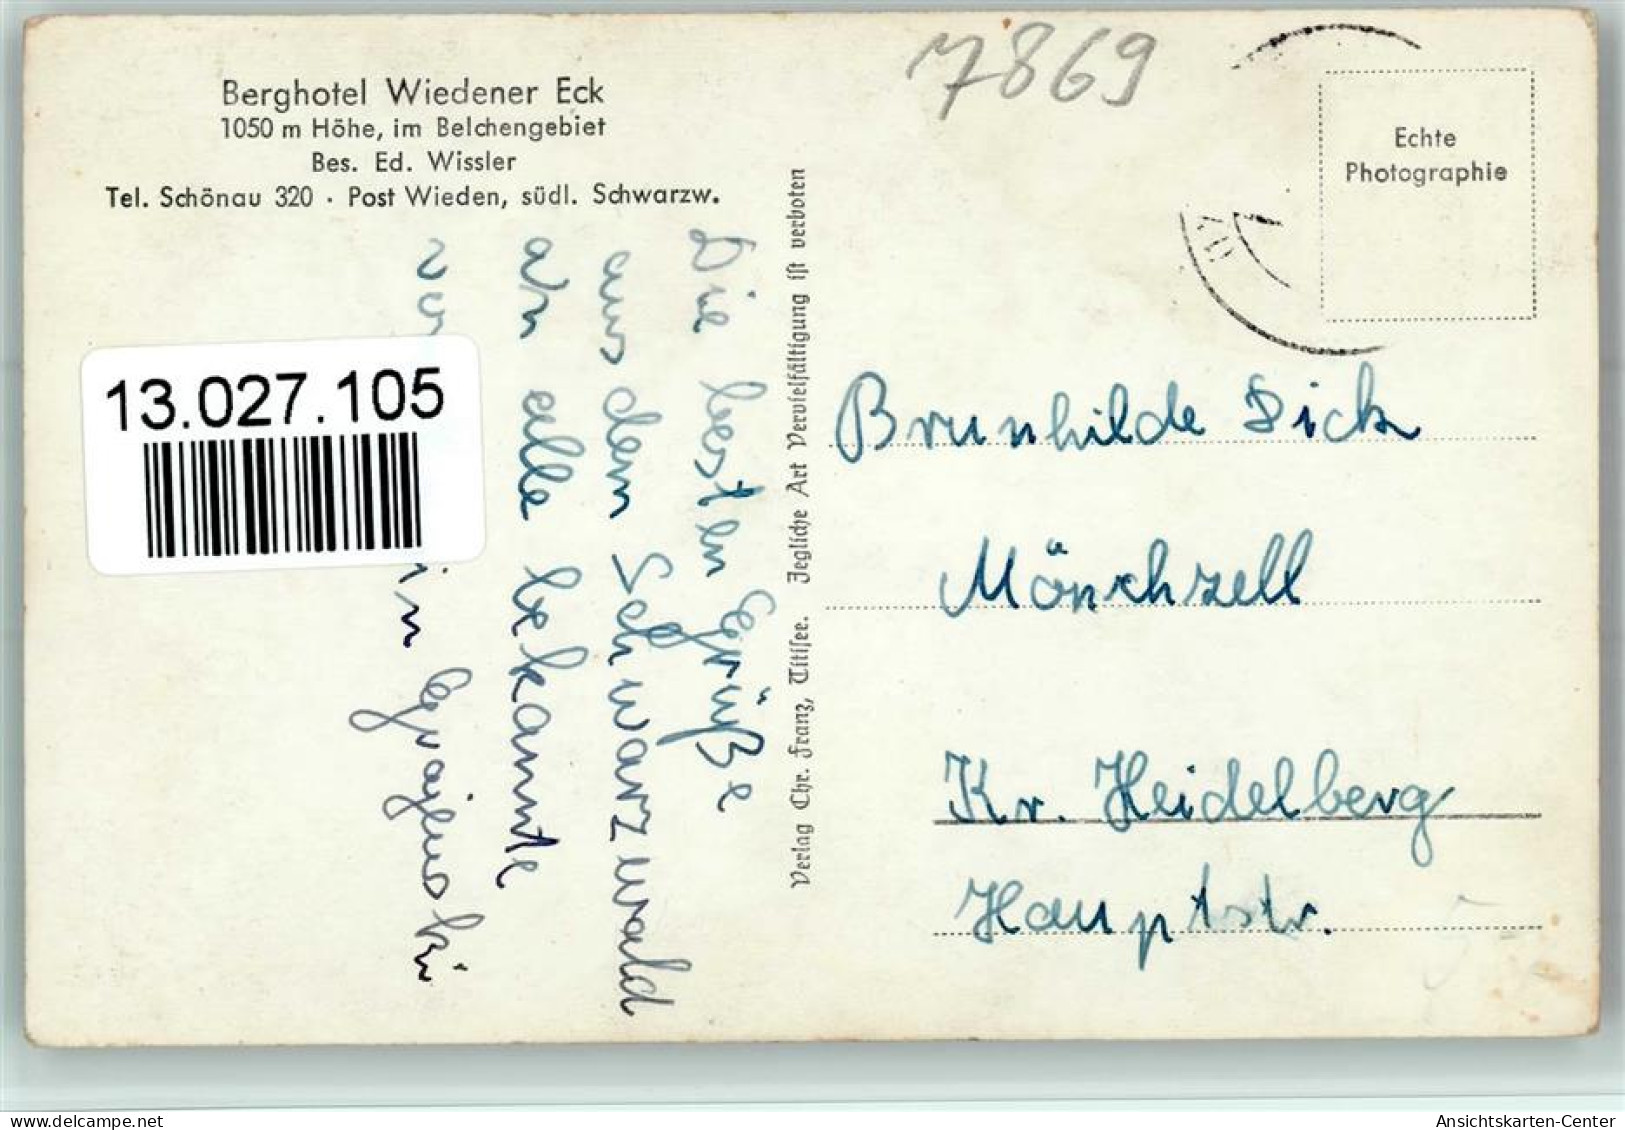 Berghotel Wiedener Eck
1050 m Höhe, im Belchengebiet
Bes. Ed. Wissler
Tel. Schönau 320 · Post Wieden, südl. Schwarzw.
7869
Echte
Photographie
Die besten Grüße
aus dem Schwarzwald
an alle bekannte
13.027.105
Verlag Chr. Franz, Titisee. Jegliche Art Vervielfältigung ist verboten
Brunhilde Dick
Mönchzell
Kr. Heidelberg
Hauptstr.
13.027.105
Ansichtskarten-Center